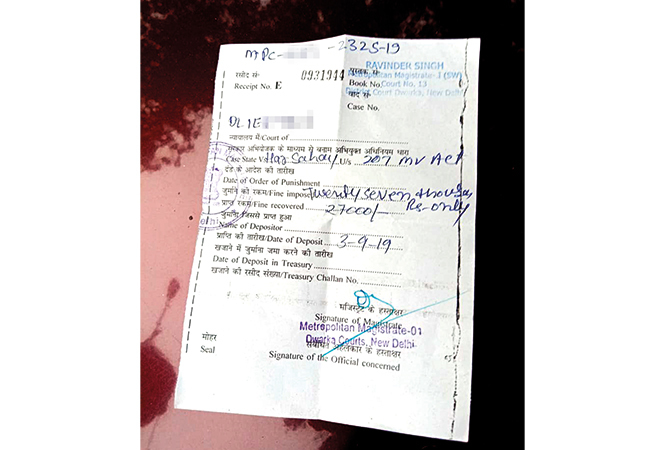 MPC- -2325-19
RAVINDER SINGH
Metropolitan Magistrate-I (SW)
रसीद सं॰ पुस्तक सं॰
Receipt No. E 0931944 Book No. Court No. 13
District Court Dwarka, New Delhi
वाद सं॰
Case No.
DL1E
न्यायालय में/Court of
सरकार अभियोजक के माध्यम से बनाम अभियुक्त अधिनियम धारा
Case State V Har Sahay U/s 207 MV Act
दंड के आदेश की तारीख
Date of Order of Punishment
जुर्माने की रकम/Fine impose Twenty seven thousand
प्राप्त रकम/Fine recovered 27000/- Rs-only
जुर्माना जिससे प्राप्त हुआ
Name of Depositor
प्राप्ति की तारीख/Date of Deposit 3-9-19
खजाने में जुर्माना जमा करने की तारीख
Date of Deposit in Treasury
खजाने की रसीद संख्या/Treasury Challan No.
मजिस्ट्रेट के हस्ताक्षर
Signature of Magistrate
Metropolitan Magistrate-01
Dwarka Courts, New Delhi
मोहर संबंधित अहलकार के हस्ताक्षर
Seal Signature of the Official concerned